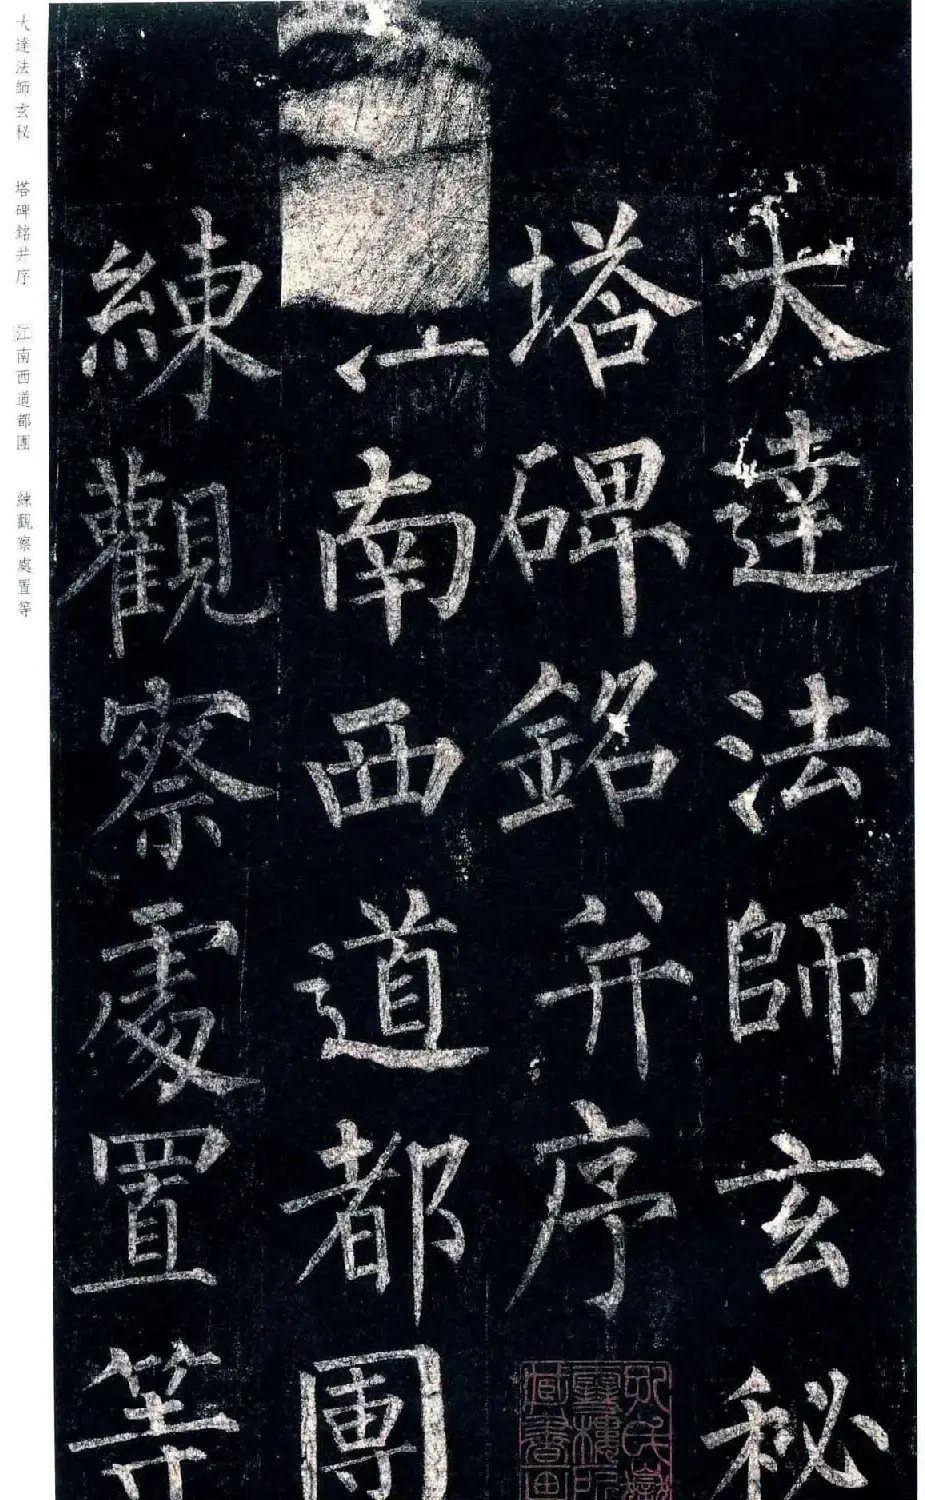 大達法師玄秘
塔碑銘并序
江南西道都團
練觀察處置等
孔氏嶽
雪樓所
藏書画
大達法師玄秘　塔碑銘并序　江南西道都團　練觀察處置等